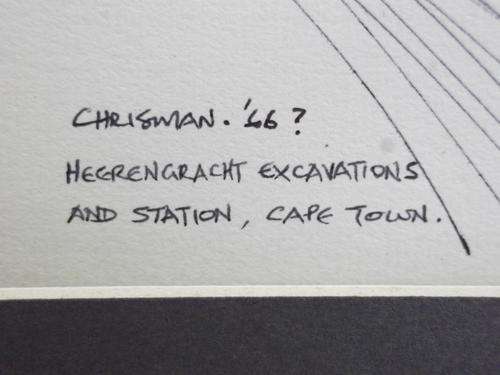 CHRISMAN. '66?
HEERENGRACHT EXCAVATIONS
AND STATION, CAPE TOWN.